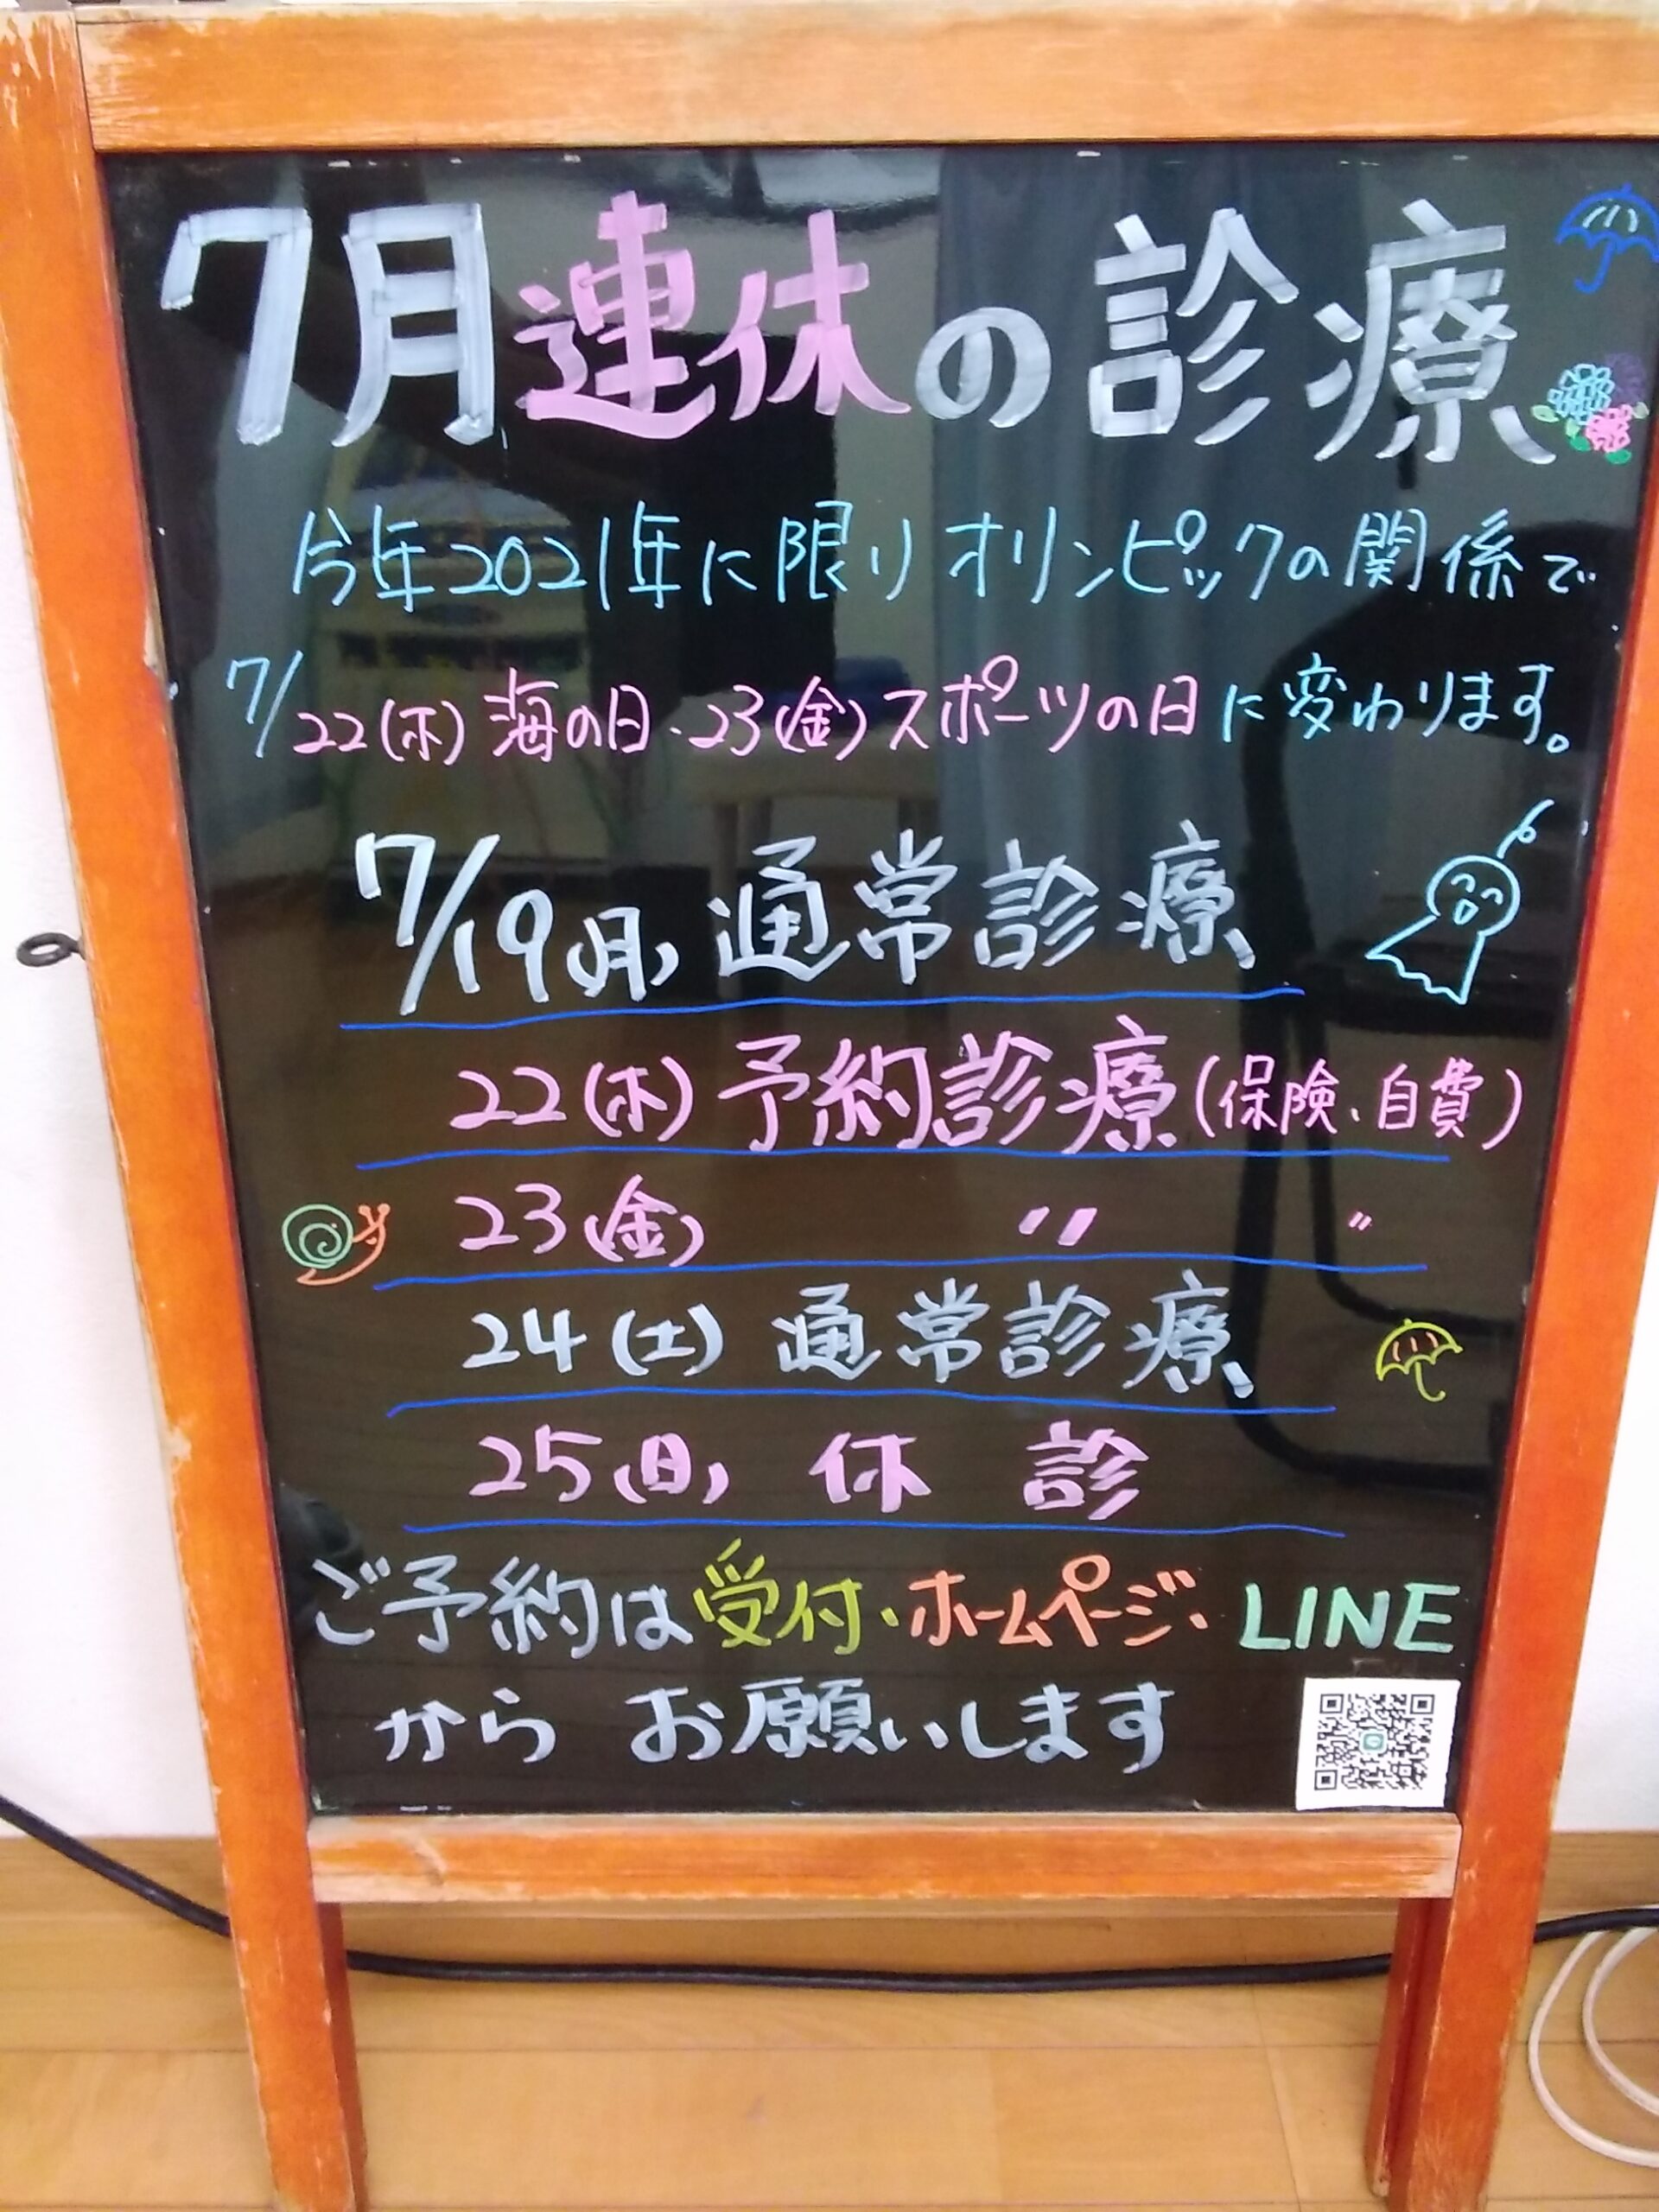 7月連休の診療
今年2021年に限りオリンピックの関係で
7/22(木)海の日・23(金)スポーツの日に変わります。
7/19(月)通常診療
22(木)予約診療(保険、自費)
23(金) 〃 〃
24(土)通常診療
25(日)休診
ご予約は受付・ホームページ・LINE
からお願いします